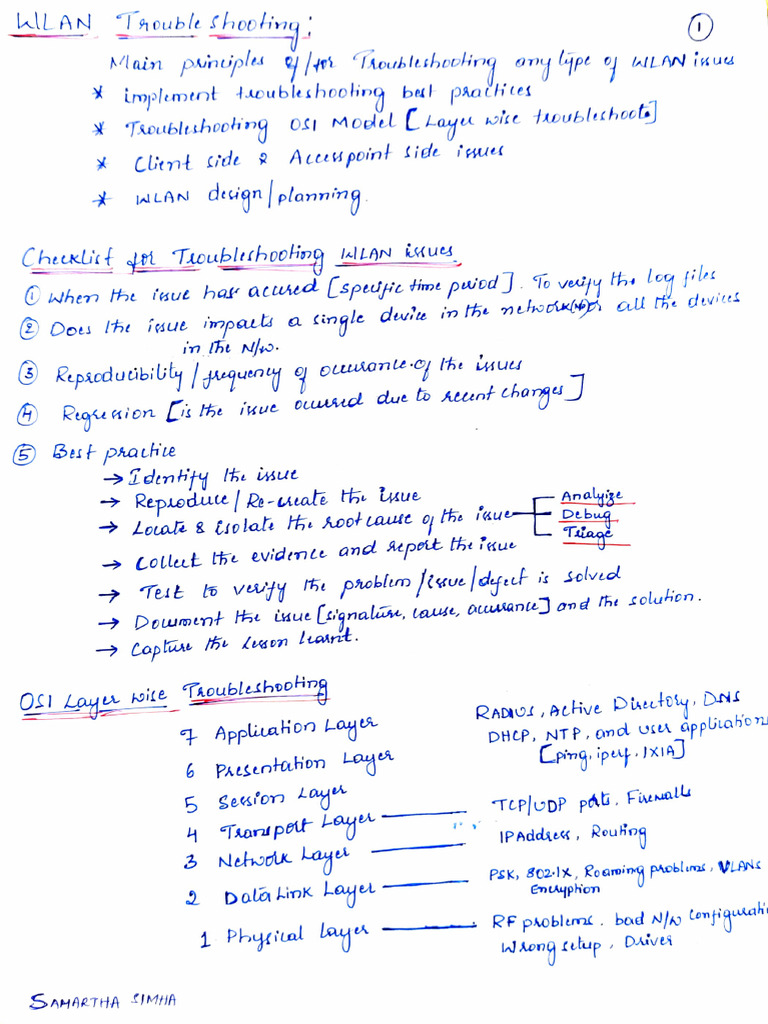 WLAN Troubleshooting:
1
Main principles of/for Troubleshooting any type of WLAN issues
* implement troubleshooting best practices
* Troubleshooting OSI Model [Layer wise troubleshoot]
* Client side & Accesspoint side issues
* WLAN design/planning.
Checklist for Troubleshooting WLAN issues
① When the issue has acured [specific time period]. To verify the log files
② Does the issue impacts a single device in the network (N/w) or all the devices
in the N/w.
③ Reproducibility/frequency of occurance of the issues
④ Regression [is the issue occured due to recent changes]
⑤ Best practice
→ Identify the issue
→ Reproduce/Re-create the issue
→ Locate & isolate the root cause of the issue
Analyize
Debug
Triage
→ Collect the evidence and report the issue
→ Test to verify the problem/issue/defect is solved
→ Document the issue [signature, cause, accurance] and the solution.
→ Capture the lesson learnt.
OSI Layer wise Troubleshooting
7 Application Layer
RADIUS, Active Directory, DNS
DHCP, NTP, and user applications
[ping, iperf, IXIA]
6 Presentation Layer
5 Session Layer
4 Transport Layer — TCP/UDP ports, Firewalls
3 Network Layer — IPAddress, Routing
2 DataLink Layer — PSK, 802.1X, Roaming problems, VLANs
Encryption
1 Physical Layer — RF problems, bad N/W configurati
Wrong setup, Driver
SAMARTHA SIMHA